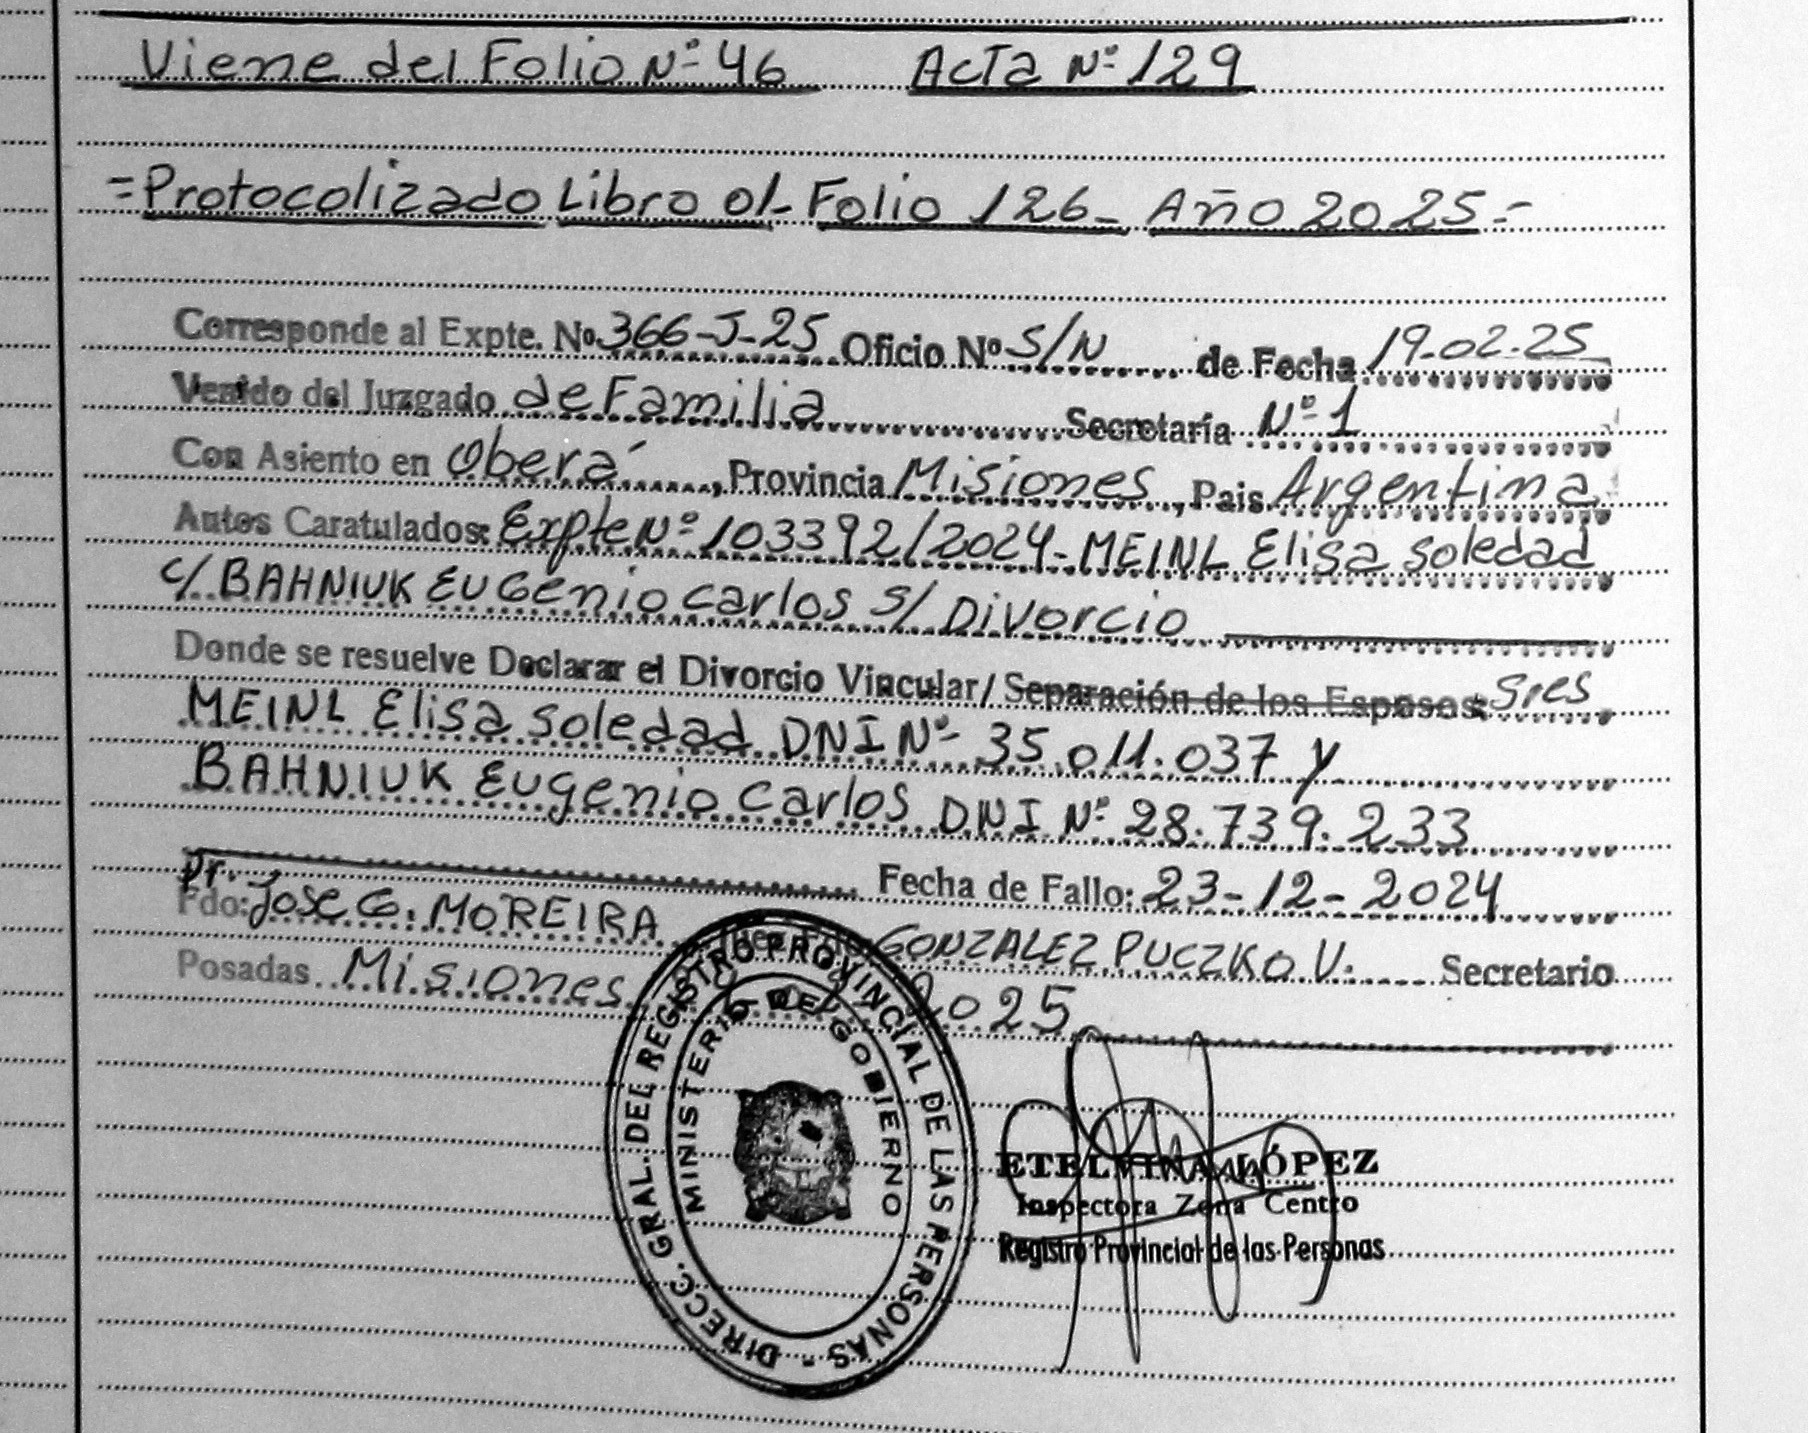 Viene del Folio Nº 46 Acta Nº 129
=Protocolizado Libro 01- Folio 126- Año 2025.=
Corresponde al Expte. Nº 366-J-25 Oficio Nº S/N de Fecha 19.02.25
Venido del Juzgado de Familia Secretaría Nº 1
Con Asiento en Oberá, Provincia Misiones, Pais Argentina
Autos Caratulados: Expte Nº 103392/2024- MEINL Elisa Soledad
c/ BAHNIUK EUGenio Carlos s/ Divorcio
Donde se resuelve Declarar el Divorcio Vincular/Separación de los Esposos: Sres
MEINL Elisa Soledad DNI Nº 35.011.037 y
BAHNIUK Eugenio Carlos DNI Nº 28.739.233
Fecha de Fallo: 23-12-2024
Fdo: Dr. Jose G. MOREIRA Juez Fdo: GONZALEZ PUCZKO V. Secretario
Posadas Misiones 2025
DIRECC. GRAL. DEL REGISTRO PROVINCIAL DE LAS PERSONAS -
MINISTERIO DE GOBIERNO
ETELVINA LÓPEZ
Inspectora Zona Centro
Registro Provincial de las Personas